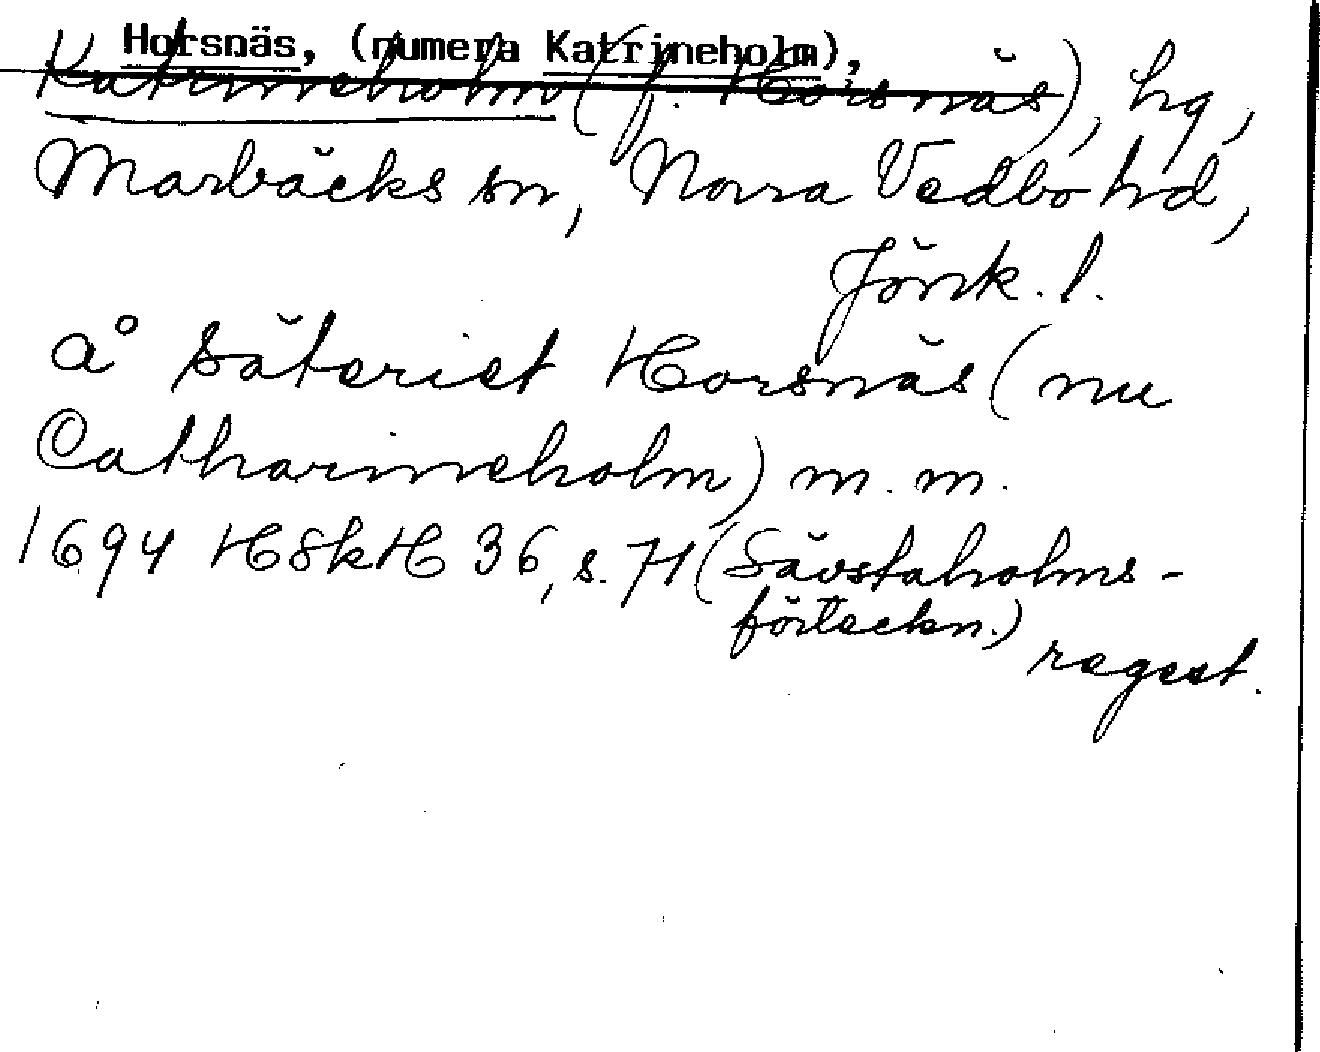 Horsnäs, (numera Katrineholm),
Katrineholm (f. Horsnäs), hg,
Marbäcks sn, Norra Vedbo hd,
Jönk. l.
å säteriet Horsnäs (nu
Catharineholm) m. m.
1694 HSkH 36, s. 71 (Sävstaholms-
förteckn.)
regest.